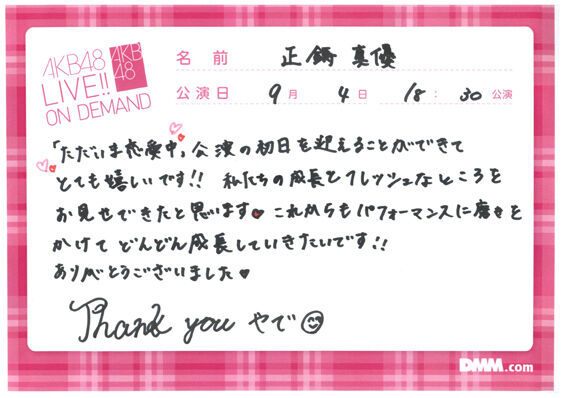 AKB48
LIVE!!
ON DEMAND
AKB
48
名前 正鋳真優
公演日 9月 4日 18:30公演
「ただいま恋愛中」公演の初日を迎えることができて
とても嬉しいです!! 私たちの成長とフレッシュなところを
お見せできたと思います♥ これからもパフォーマンスに磨きを
かけて どんどん成長していきたいです!!
ありがとうございました♥
Thank you やで☺
DMM.com